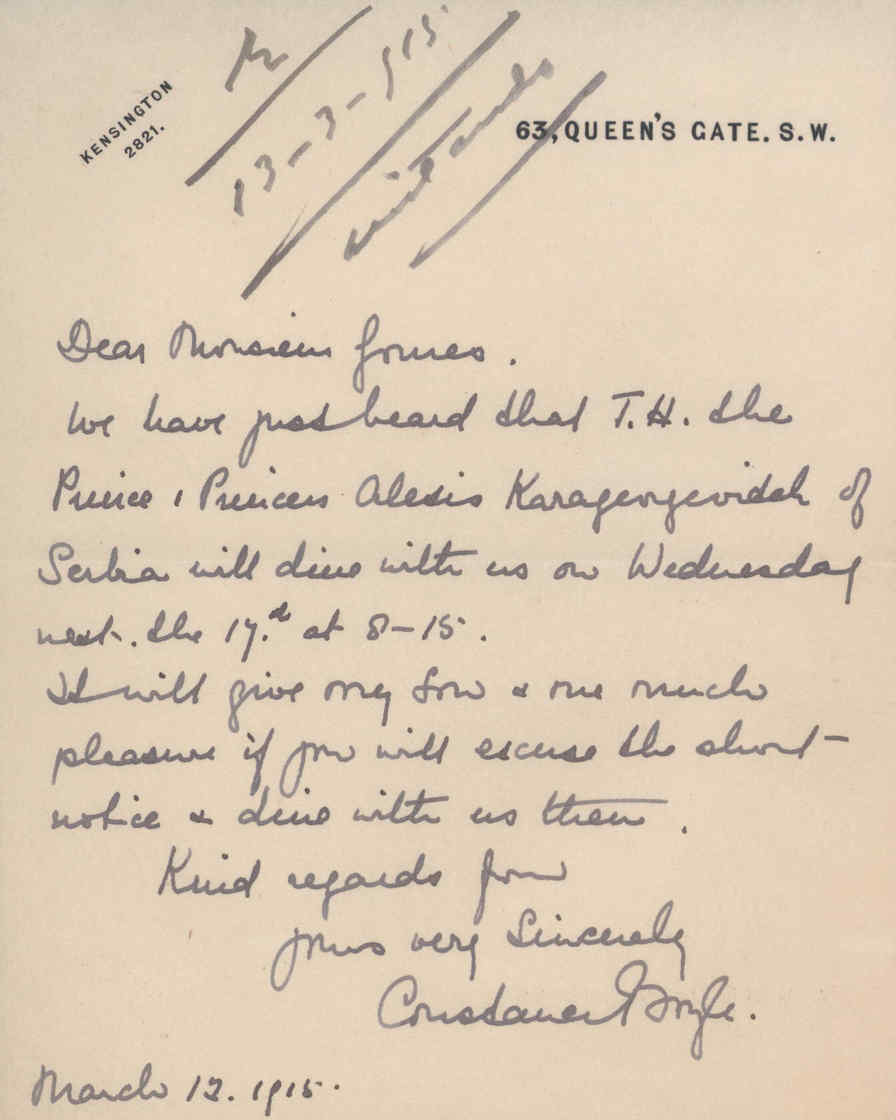 KENSINGTON
2821.
R
13-3-915
63, QUEEN'S GATE. S.W.
Dear Monsieur Gomes.
We have just heard that T.H. the
Prince & Princess Alexis Karageorgevitch of
Serbia will dine with us on Wednesday
next. the 17.th at 8-15.
It will give my Son & me much
pleasure if you will excuse the short
notice & dine with us then.
Kind regards from
yours very Sincerely
Constance Boyle.
March 12. 1915.